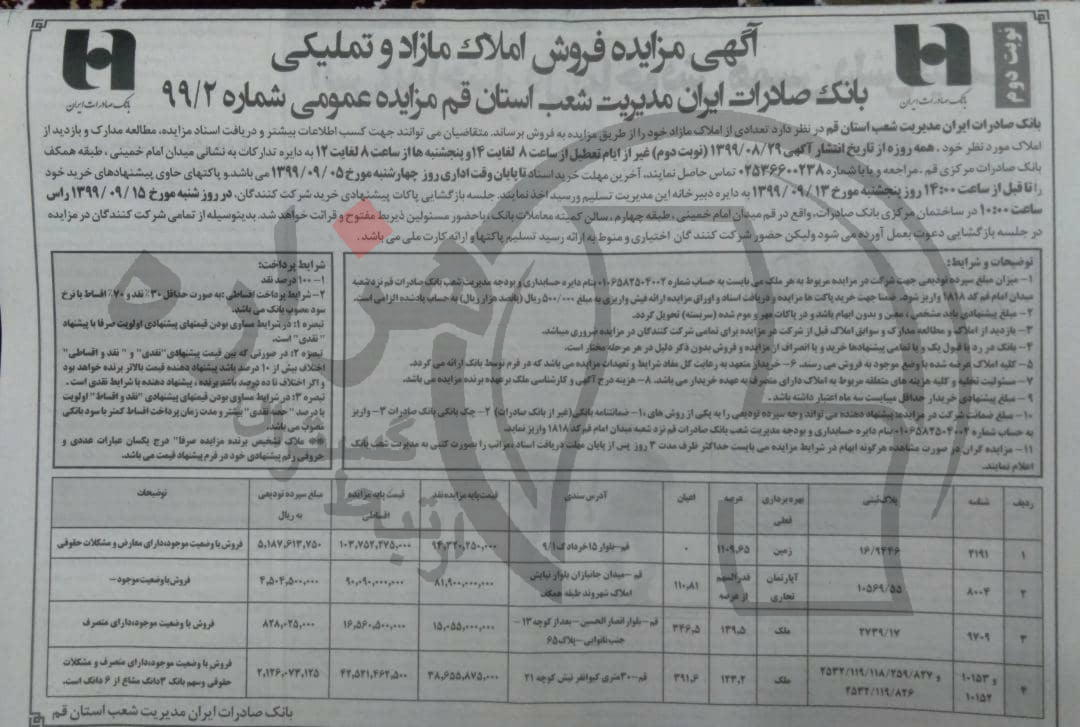 نوبت دوم
بانک صادرات ایران
بانک صادرات ایران
آگهی مزایده فروش املاک مازاد و تملیکی
بانک صادرات ایران مدیریت شعب استان قم مزایده عمومی شماره ۹۹/۲
بانک صادرات ایران مدیریت شعب استان قم در نظر دارد تعدادی از املاک مازاد خود را از طریق مزایده به فروش برساند. متقاضیان می توانند جهت کسب اطلاعات بیشتر و دریافت اسناد مزایده، مطالعه مدارک و بازدید از
املاک مورد نظر خود ، همه روزه از تاریخ انتشار آگهی ۱۳۹۹/۰۸/۲۹ (نوبت دوم) غیر از ایام تعطیل از ساعت ۸ لغایت ۱۴ و پنجشنبه ها از ساعت ۸ لغایت ۱۲ به دایره تدارکات به نشانی میدان امام خمینی ، طبقه همکف
بانک صادرات مرکزی قم . مراجعه و یا با شماره ۰۲۵۳۶۶۰۰۲۳۸ تماس حاصل نمایند. آخرین مهلت خرید اسناد تا پایان وقت اداری روز چهارشنبه مورخ ۱۳۹۹/۰۹/۰۵ می باشد.و پاکتهای حاوی پیشنهادهای خرید خود
را تا قبل از ساعت ۱۴:۰۰ روز پنجشنبه مورخ ۱۳۹۹/۰۹/۱۳ به دایره دبیرخانه این مدیریت تسلیم و رسید اخذ نمایند. جلسه بازگشایی پاکات پیشنهادی خرید شرکت کنندگان، در روز شنبه مورخ ۱۳۹۹/۰۹/۱۵ راس
ساعت ۱۰:۰۰ در ساختمان مرکزی بانک صادرات، واقع در قم میدان امام خمینی ، طبقه چهارم ، سالن کمیته معاملات بانک ، باحضور مسئولین ذیربط مفتوح و قرائت خواهد شد. بدینوسیله از تمامی شرکت کنندگان در مزایده
در جلسه بازگشایی دعوت بعمل آورده می شود ولیکن حضور شرکت کنندگان اختیاری و منوط به ارائه رسید تسلیم پاکتها و ارائه کارت ملی می باشد .
توضیحات و شرایط:
۱- میزان مبلغ سپرده تودیعی جهت شرکت در مزایده مربوط به هر ملک می بایست به حساب شماره ۰۱۰۶۵۸۲۵۰۴۰۰۲ بنام دایره حسابداری و بودجه مدیریت شعب بانک صادرات قم نزد شعبه
میدان امام قم کد ۱۸۱۸ واریز شود. ضمنا جهت خرید پاکت ها مزایده و دریافت اسناد و اوراق مزایده ارائه فیش واریزی به مبلغ ۵۰۰/۰۰۰ ریال (پانصد هزار ریال) به حساب یادشده الزامی است.
۲- مبلغ پیشنهادی باید مشخص ، معین و بدون ابهام باشد و در پاکات مهر و موم شده (سربسته) تحویل گردد.
۳- بازدید از املاک و مطالعه مدارک و سوابق املاک قبل از شرکت در مزایده برای تمامی شرکت کنندگان در مزایده ضروری میباشد.
۴- بانک در رد یا قبول یک و یا تمامی پیشنهادها خرید و یا انصراف از مزایده و فروش بدون ذکر دلیل در هر مرحله مختار است.
۵- کلیه املاک عرضه شده با وضع موجود به فروش می رسند. ۶- خریدار متعهد به رعایت کل مفاد شرایط و تعهدات مزایده می باشد که در فرم توسط بانک ارائه می گردد.
۷- مسئولیت تخلیه و کلیه هزینه های متعلقه مربوط به املاک دارای متصرف به عهده خریدار می باشد. ۸- هزینه درج آگهی و کارشناسی ملک بر عهده برنده مزایده می باشد.
۹- مبلغ پیشنهادی خریدار حداقل میبایست سه ماه اعتبار داشته باشد .
۱۰- مبلغ ضمانت شرکت در مزایده: پیشنهاد دهنده می تواند وجه سپرده تودیعی را به یکی از روش های ۱- ضمانتنامه بانکی(غیر از بانک صادرات) ۲- چک بانکی بانک صادرات ۳- واریز
به حساب شماره ۰۱۰۶۵۸۲۵۰۴۰۰۲ بنام دایره حسابداری و بودجه مدیریت شعب بانک صادرات قم نزد شعبه میدان امام قم کد ۱۸۱۸ واریز نماید.
۱۱- مزایده گران در صورت مشاهده هرگونه ابهام در شرایط مزایده می بایست حداکثر ظرف مدت ۳ روز پس از پایان مهلت دریافت اسناد ،مراتب را بصورت کتبی به مدیریت شعب بانک
اعلام نمایند.
شرایط پرداخت:
۱- ۱۰۰ درصد نقد
۲- شرایط پرداخت اقساطی :به صورت حداقل ۳۰٪ نقد و ۷۰٪ اقساط با نرخ
سود مصوب بانک می باشد.
تبصره ۱: در شرایط مساوی بودن قیمتهای پیشنهادی اولویت صرفا با پیشنهاد
" نقدی" است.
تبصره ۲: در صورتی که بین قیمت پیشنهادی"نقدی" و " نقد و اقساطی "
اختلاف بیش از ۱۰ درصد باشد پیشنهاد دهنده قیمت بالاتر برنده خواهد بود
و اگر اختلاف تا ده درصد باشد برنده ، پیشنهاد دهنده با شرایط نقدی است .
تبصره ۳: در شرایط مساوی بودن قیمتهای پیشنهادی "نقد و اقساط" اولویت
با درصد "حصه نقدی" بیشتر و مدت زمان پرداخت اقساط کمتر با سود بانکی
مصوب می باشد.
** ملاک تشخیص برنده مزایده صرفا" درج یکسان عبارات عددی و
حروفی رقم پیشنهادی خود در فرم پیشنهاد قیمت می باشد.
ردیف شناسه پلاک ثبتی بهره برداری فعلی عرصه اعیان آدرس سندی قیمت پایه مزایده نقد قیمت پایه مزایده اقساطی مبلغ سپرده تودیعی به ریال توضیحات
۱ ۲۱۹۱ ۱۶/۹۴۴۶ زمین ۱۱۰۹,۶۵ ۰ قم-بلوار ۱۵خرداد ک۹/۱ ۹۴,۳۲۰,۲۵۰,۰۰۰ ۱۰۳,۷۵۲,۲۷۵,۰۰۰ ۵,۱۸۷,۶۱۳,۷۵۰ فروش با وضعیت موجود،دارای معارض و مشکلات حقوقی
۲ ۸۰۰۴ ۱۰۵۶۹/۵۵ آپارتمان تجاری قدرالسهم از عرصه ۱۱۰,۸۱ قم -میدان جانبازان بلوار نیایش املاک شهروند طبقه همکف ۸۱,۹۰۰,۰۰۰,۰۰۰ ۹۰,۰۹۰,۰۰۰,۰۰۰ ۴,۵۰۴,۵۰۰,۰۰۰ فروش با وضعیت موجود-
۳ ۹۷۰۹ ۲۷۳۹/۱۷ ملک ۱۳۹,۵ ۳۴۶,۵ قم-بلوار انصار الحسین -بعد از کوچه ۱۳- جنب نانوایی-پلاک ۶۵ ۱۵,۰۵۵,۰۰۰,۰۰۰ ۱۶,۵۶۰,۵۰۰,۰۰۰ ۸۲۸,۰۲۵,۰۰۰ فروش با وضعیت موجود،دارای متصرف
۴ ۱۰۱۵۳ و ۱۰۱۵۲ ۲۵۳۲/۱۱۹/۱۱۸/۲۵۹/۸۲۷ و ۲۵۳۲/۱۱۹/۸۲۶ ملک ۱۲۳,۲ ۳۹۱,۶ قم-۳۰متری کیوانفر نبش کوچه ۲۱ ۳۸,۶۵۵,۸۷۵,۰۰۰ ۴۲,۵۲۱,۴۶۲,۵۰۰ ۲,۱۲۶,۰۷۳,۱۲۵ فروش با وضعیت موجود،دارای متصرف و مشکلات حقوقی وسهم بانک ۳دانگ مشاع از ۶ دانگ است.
بانک صادرات ایران مدیریت شعب استان قم